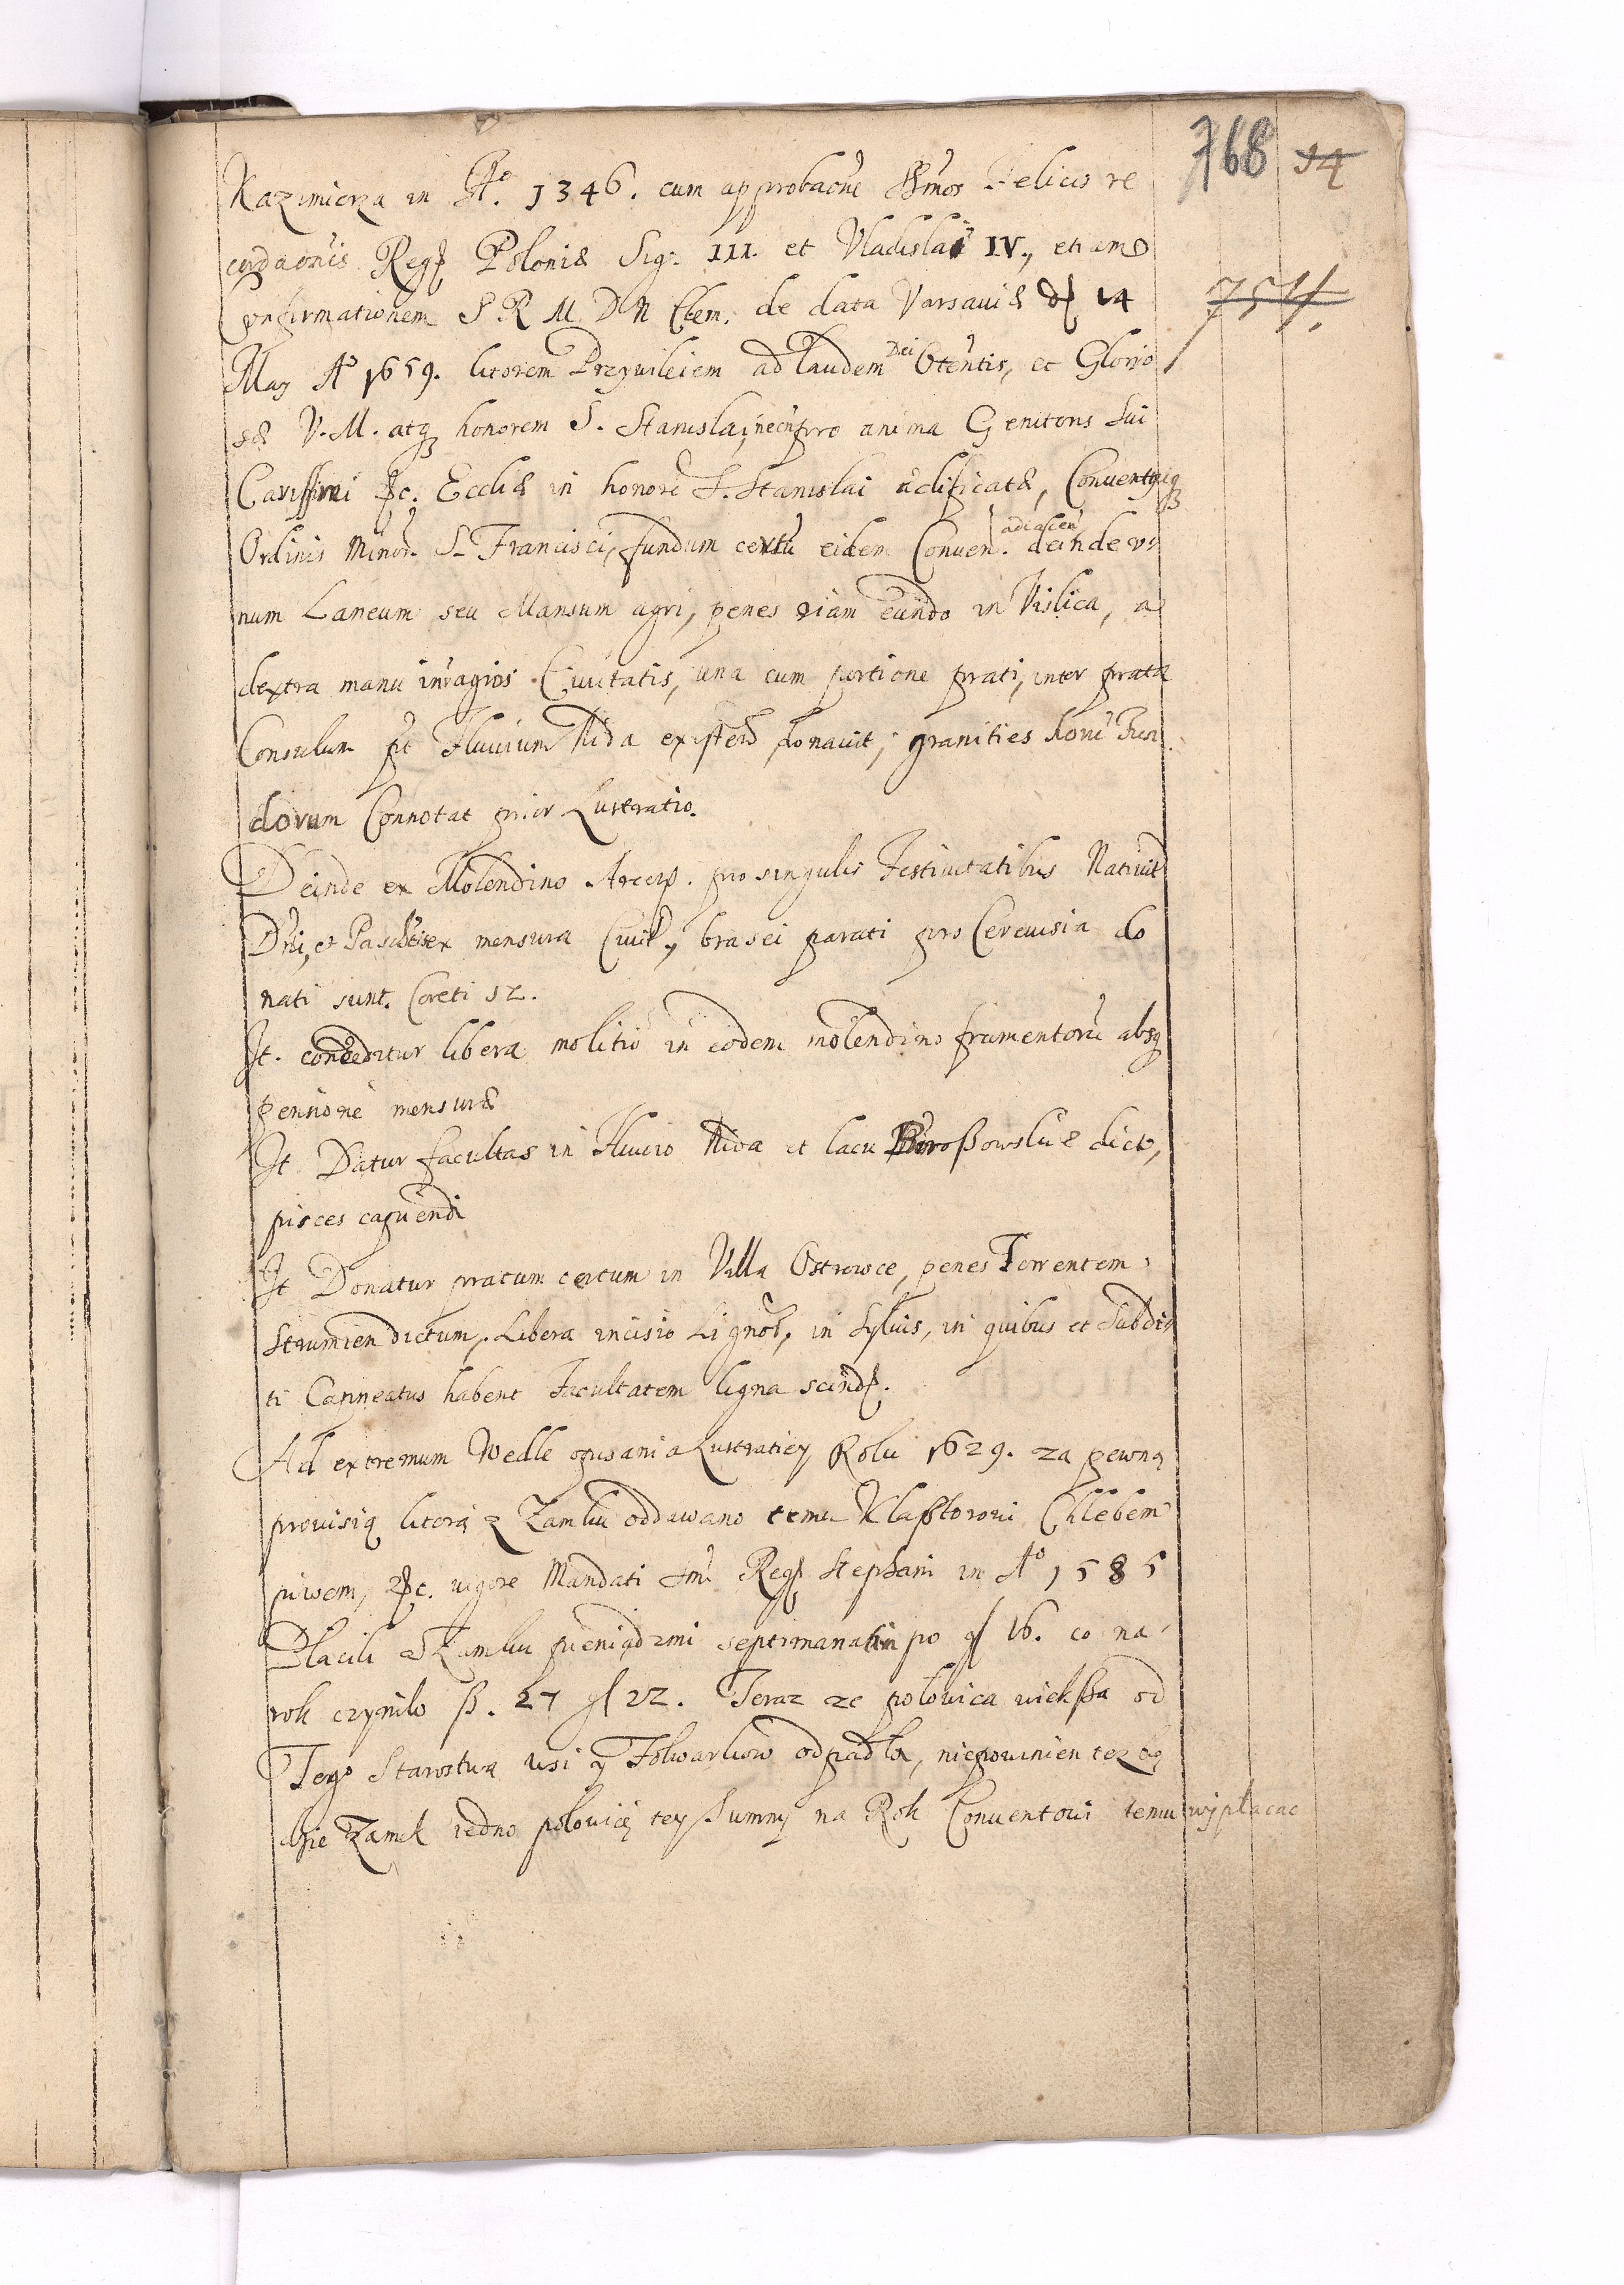 768 14
Kazimierza in Ao. 1346. cum approbaōne Srmōs Felicis re
cordaōnis Reg Poloniæ Sig. III. et Vladislai IV., etiam
Confirmationem S R M D N Clem. de data Varsaviæ d 14
754.
May Ao 1659. litorem Przywileiem ad laudem Dei Otentis, et Glorio
sæ V. M. atq honorem S. Stanislai, necn pro anima Genitoris Sui
Carissimi &c. Eccliæ in honore S. Stanislai ædificatæ, Conventuiq
Ordinis Minor. S. Francisci, fundum certū eidem Conven. adiacen deinde v
num Laneum seu Mansum agri, penes viam eundo in Vislica, a
dextra manu in agris Civitatis, una cum portione prati, inter prata
Consulum et Fluvium Nida existen donavit; granities horū Fun
dorum Connotat prior Lustratio.
Deinde ex Molendino Arcen. pro singulis Festivitatibus Nativit
Dni, et Paschtis ex mensura Civil, brasei parati pro Cerevisia do
nati sunt. Coreti 12.
It. conceditur libera molitio in eodem molendino frumentorū absq
pensione mensuræ
It Datur facultas in Fluvio Nida et lacu dict,
pisces capiendi
It Donatur pratum certum in Villa Ostrowce, penes Torrentem
Strumien dictum, Libera incisio Lignor, in Sylvis, in quibus et Subdi
ti Capineatus habent Facultatem ligna scind.
Ad extremum Wedle opisania Lustratiey Roku 1629. za pewną
provisią litorą z Zamku oddawano temu Klasztorowi Chlebem
piwem, &c. vigore Mandati Smi Reg Stephani in Ao 1585
Placili z Zamku pieniądzmi septimanatim po g 16. co na
rok czynilo f. 27 g 22. Teraz ze polowica wieksza od
Tego Starostwa wsi y Folwarkow odpadła, niepowinien tez
Zamek iedno polowicę tey Summy na Rok Conventowi temu wypłacac